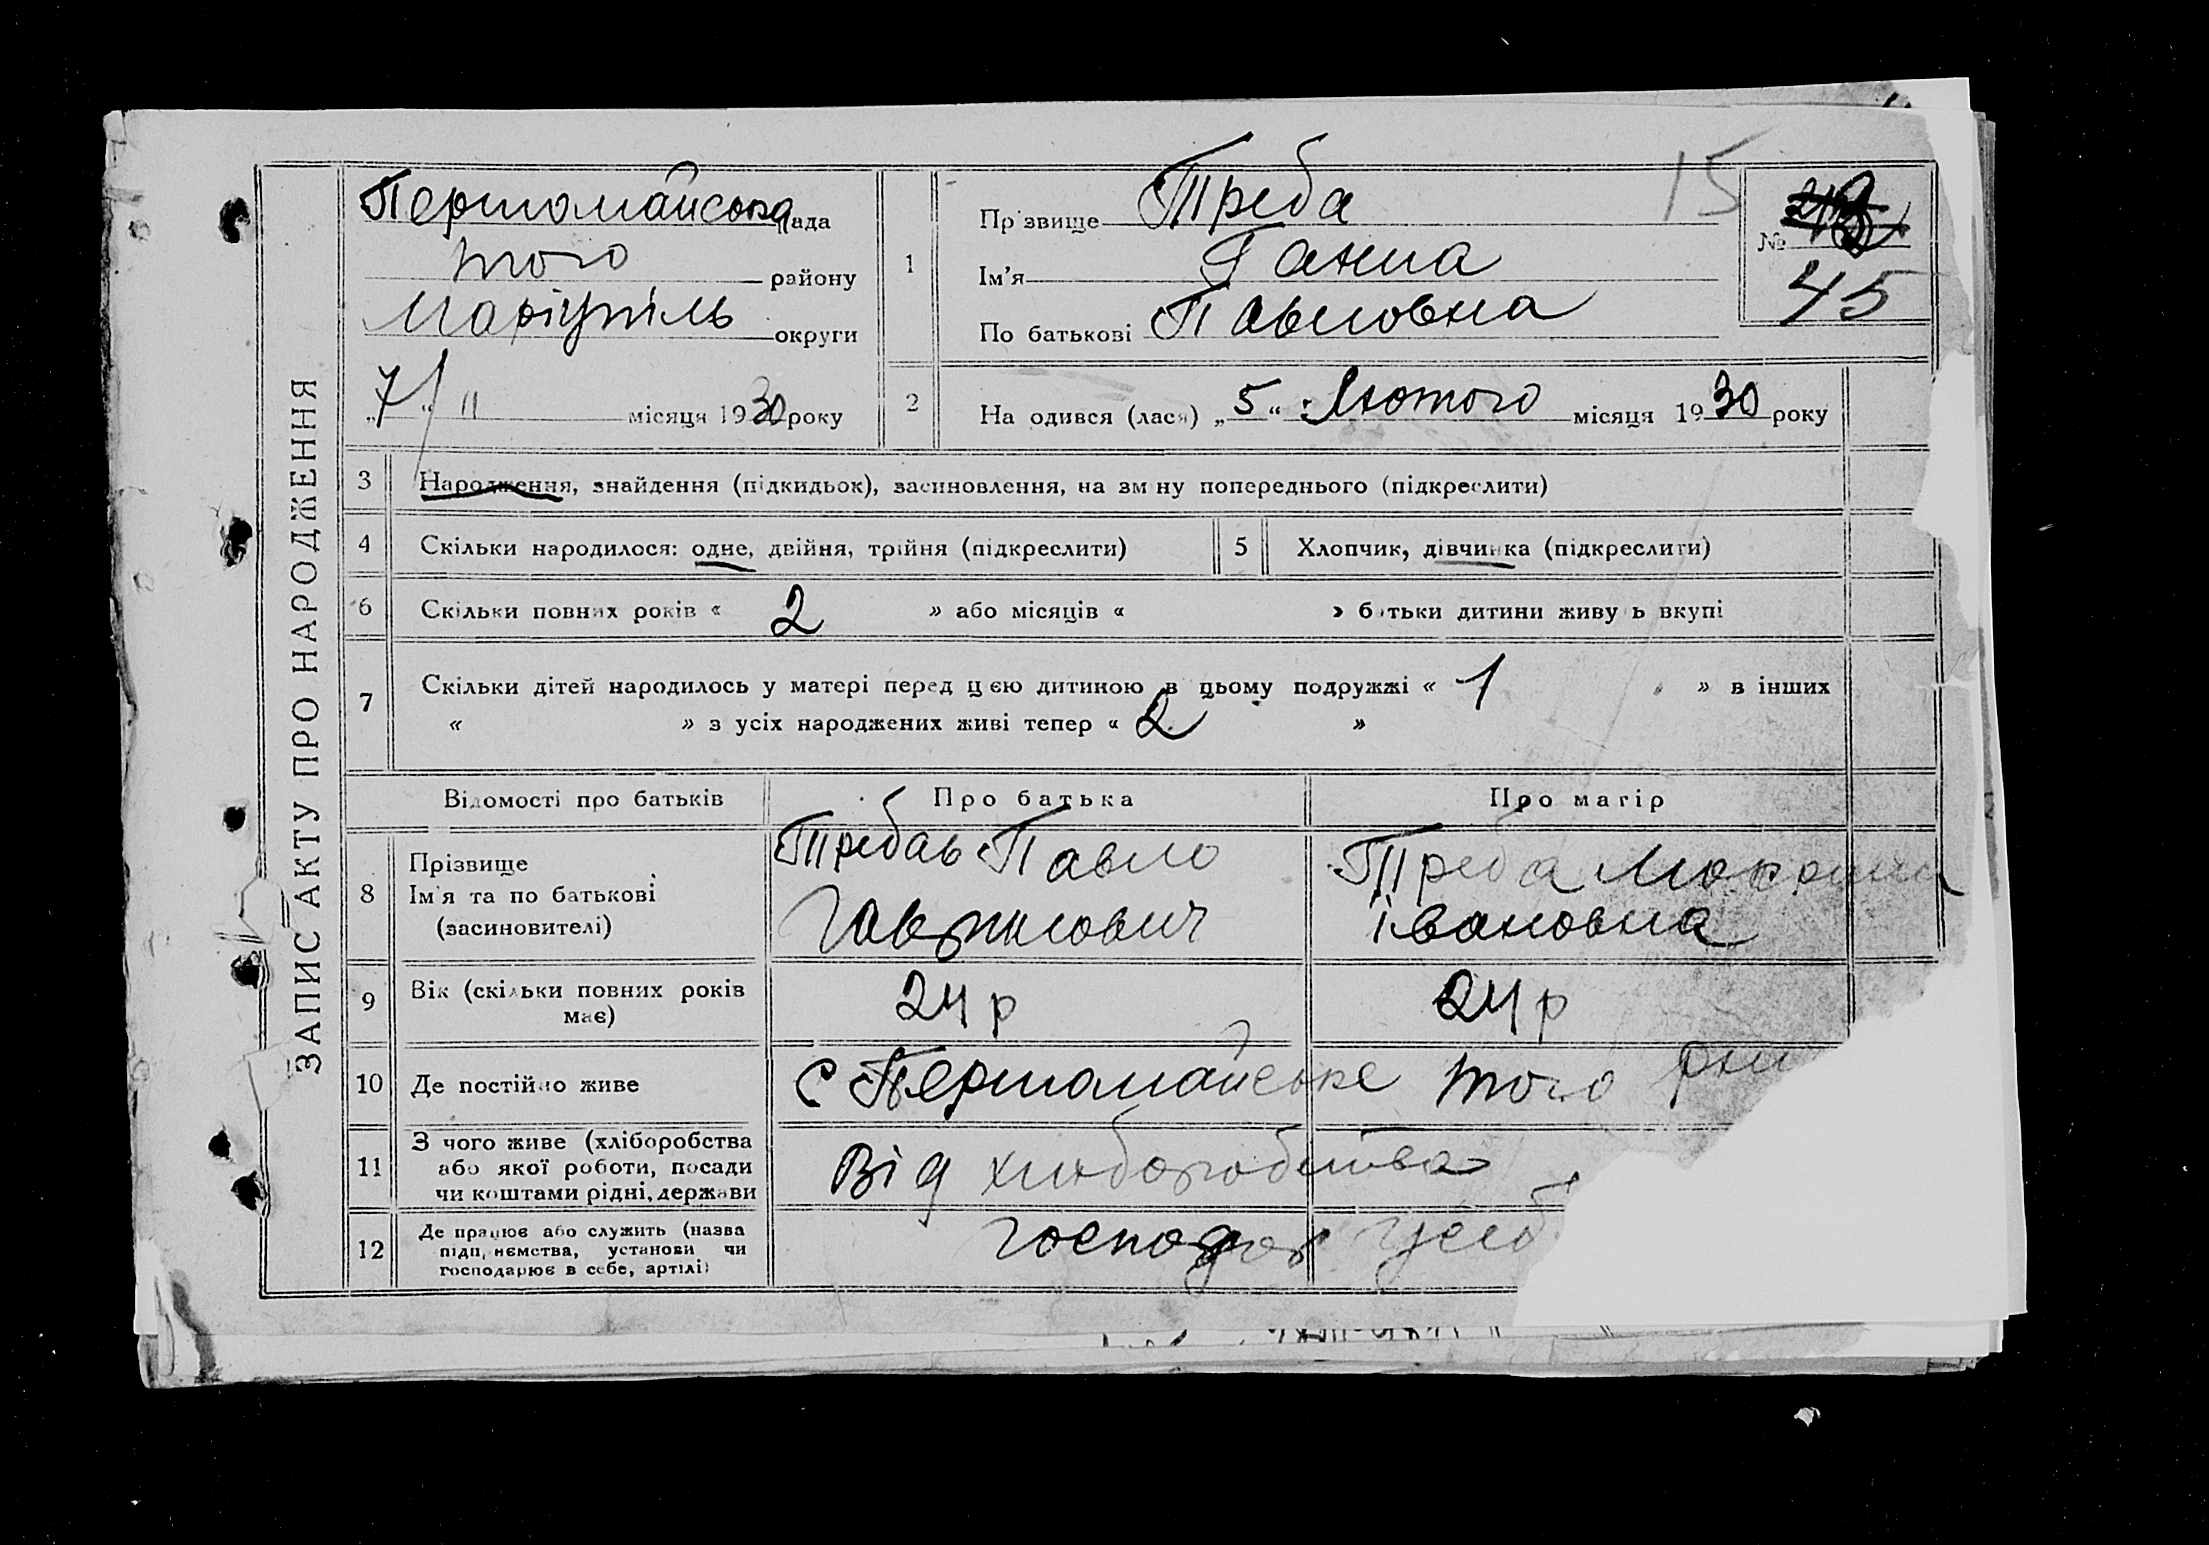 ЗАПИС АКТУ ПРО НАРОДЖЕННЯ
Першомайська рада
того району
Маріупіль округи
„7“ II місяця 1930 року
1
Прізвище Треба
Ім'я Ганна
По батькові Павловна
15
№
45
2
На одився (лася) „5“ Лютого місяця 1930 року
3
Народження, знайдення (підкидьок), засиновлення, на зм ну попереднього (підкреслити)
4
Скільки народилося: одне, двійня, трійня (підкреслити)
5
Хлопчик, дівчинка (підкреслити)
6
Скільки повних років « 2 » або місяців « » батьки дитини живу ь вкупі
7
Скільки дітей народилось у матері перед цією дитиною в цьому подружжі « 1 » в інших
« » з усіх народжених живі тепер « 2 »
Відомості про батьків
Про батька
Про матір
8
Прізвище
Ім'я та по батькові
(засиновителі)
Требаь Павло
Гаврилович
Треба
Івановна
9
Вік (скільки повних років
має)
24 р
24 р
10
Де постійно живе
с Першомайське того
11
З чого живе (хліборобства
або якої роботи, посади
чи коштами рідні, держави
Від хліборобства
12
Де працює або служить (назва
підп, иємства, установи чи
господарює в себе, артілі)
господар